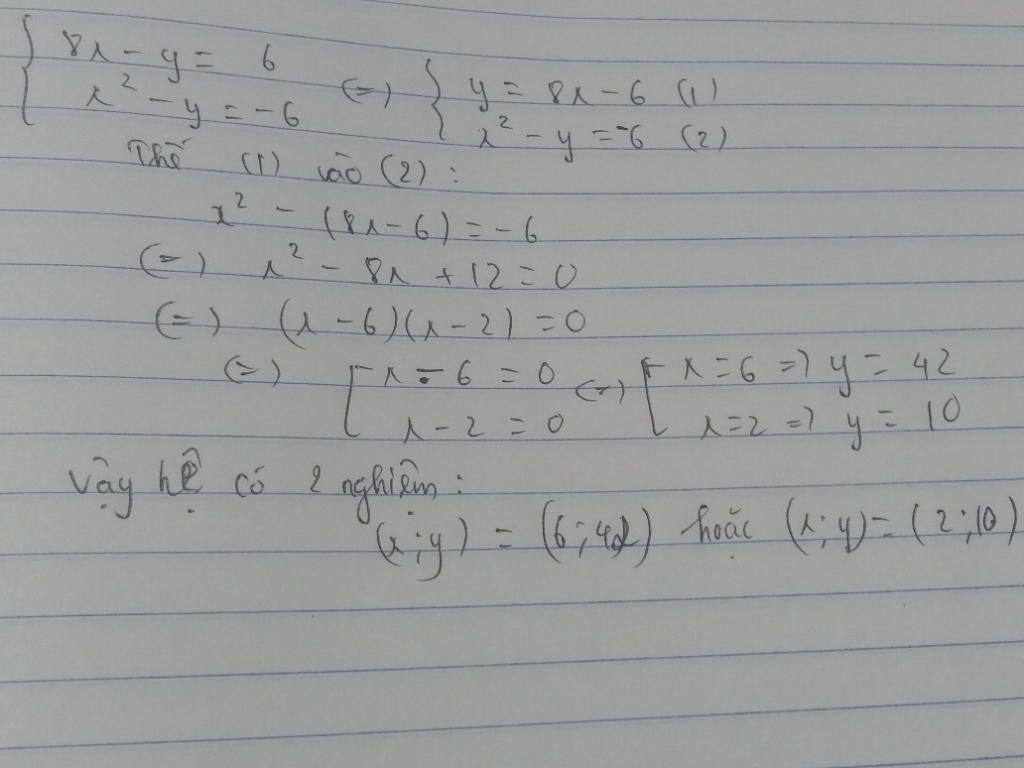 { 8x - y = 6
x² - y = -6 (=) { y = 8x - 6 (1)
x² - y = -6 (2)
Thế (1) vào (2) :
x² - (8x - 6) = -6
(=) x² - 8x + 12 = 0
(=) (x - 6)(x - 2) = 0
(=) [ x - 6 = 0 (=) [ x = 6 => y = 42
x - 2 = 0 x = 2 => y = 10
Vậy hệ có 2 nghiệm :
(x ; y) = (6 ; 42) hoặc (x ; y) = (2 ; 10)